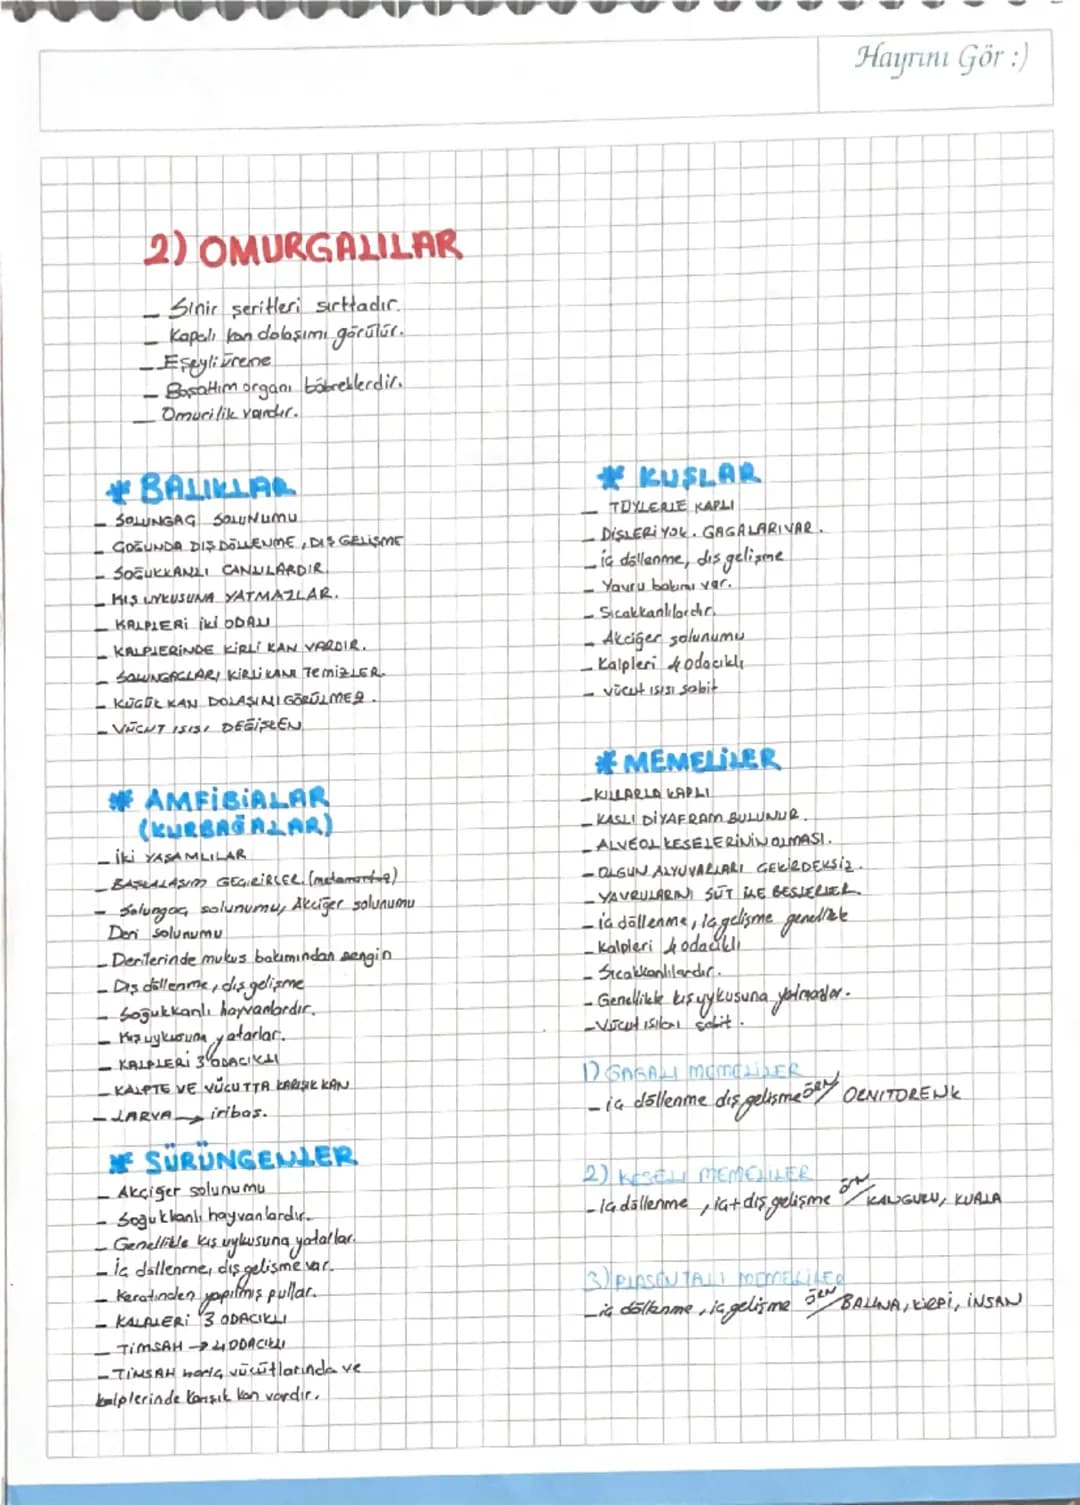 Hayrını Gör :)
2) OMURGALILAR
_ Sinir şeritleri sırttadır.
_ Kapalı kan dolaşımı görülür.
_ Eşeyli üreme
_ Boşaltım organı böbreklerdir.
_ Omurilik vardır.
* BALIKLAR
_ SOLUNGAÇ SOLUNUMU
_ ÇOĞUNDA DIŞ DÖLLENME, DIŞ GELİŞME
_ SOĞUKKANLI CANLILARDIR.
_ KIŞ UYKUSUNA YATMAZLAR.
_ KALPLERİ İKİ ODALI
_ KALPLERİNDE KİRLİ KAN VARDIR.
_ SOLUNGAÇLARI KİRLİ KANI TEMİZLER.
_ KÜÇÜK KAN DOLAŞIMI GÖRÜLMEZ.
_ VÜCUT ISISI DEĞİŞKEN
* AMFİBİALAR
(KURBAĞALAR)
_ İKİ YAŞAMLILAR
_ BAŞKALAŞIM GEÇİRİRLER. (metamorfoz)
_ Solungaç solunumu, Akciğer solunumu
Deri solunumu
_ Derilerinde mukus bakımından zengin
_ Dış döllenme, dış gelişme
_ Soğukkanlı hayvanlardır.
_ Kış uykusuna yatarlar.
_ KALPLERİ 3 ODACIKLI
_ KALPTE VE VÜCUTTA KARIŞIK KAN
_ LARVA → iribaş.
* SÜRÜNGENLER
_ Akciğer solunumu
_ Soğukkanlı hayvanlardır.
_ Genellikle kış uykusuna yatarlar.
_ İç döllenme, dış gelişme var.
_ Keratinden yapılmış pullar.
_ KALPLERİ 3 ODACIKLI
_ TİMSAH → 4 ODACIKLI
_ TİMSAH hariç vücutlarında ve
kalplerinde karışık kan vardır.
* KUŞLAR
_ TÜYLERLE KAPLI
_ DİŞLERİ YOK. GAGALARI VAR.
_ iç döllenme, dış gelişme
_ Yavru bakımı var.
_ Sıcakkanlılardır.
_ Akciğer solunumu
_ Kalpleri 4 odacıklı
_ vücut ısısı sabit
* MEMELİLER
_ KILLARLA KAPLI
_ KASLI DİYAFRAM BULUNUR.
_ ALVEOL KESELERİNİN OLMASI.
_ OLGUN ALYUVARLARI ÇEKİRDEKSİZ.
_ YAVRULARINI SÜT İLE BESLERLER
_ iç döllenme, iç gelişme genellikle
_ Kalpleri 4 odacıklı
_ Sıcakkanlılardır.
_ Genellikle kış uykusuna yatmazlar.
_ Vücut ısıları sabit.
1) GAGALI MEMELİLER
_ iç döllenme dış gelişme ÖRN/ ORNİTORENK
2) KESELİ MEMELİLER
_ iç döllenme, iç+dış gelişme ÖRN/ KANGURU, KUALA
3) PLASENTALI MEMELİLER
_ iç döllenme, iç gelişme ÖRN/ BALİNA, KİRPİ, İNSAN